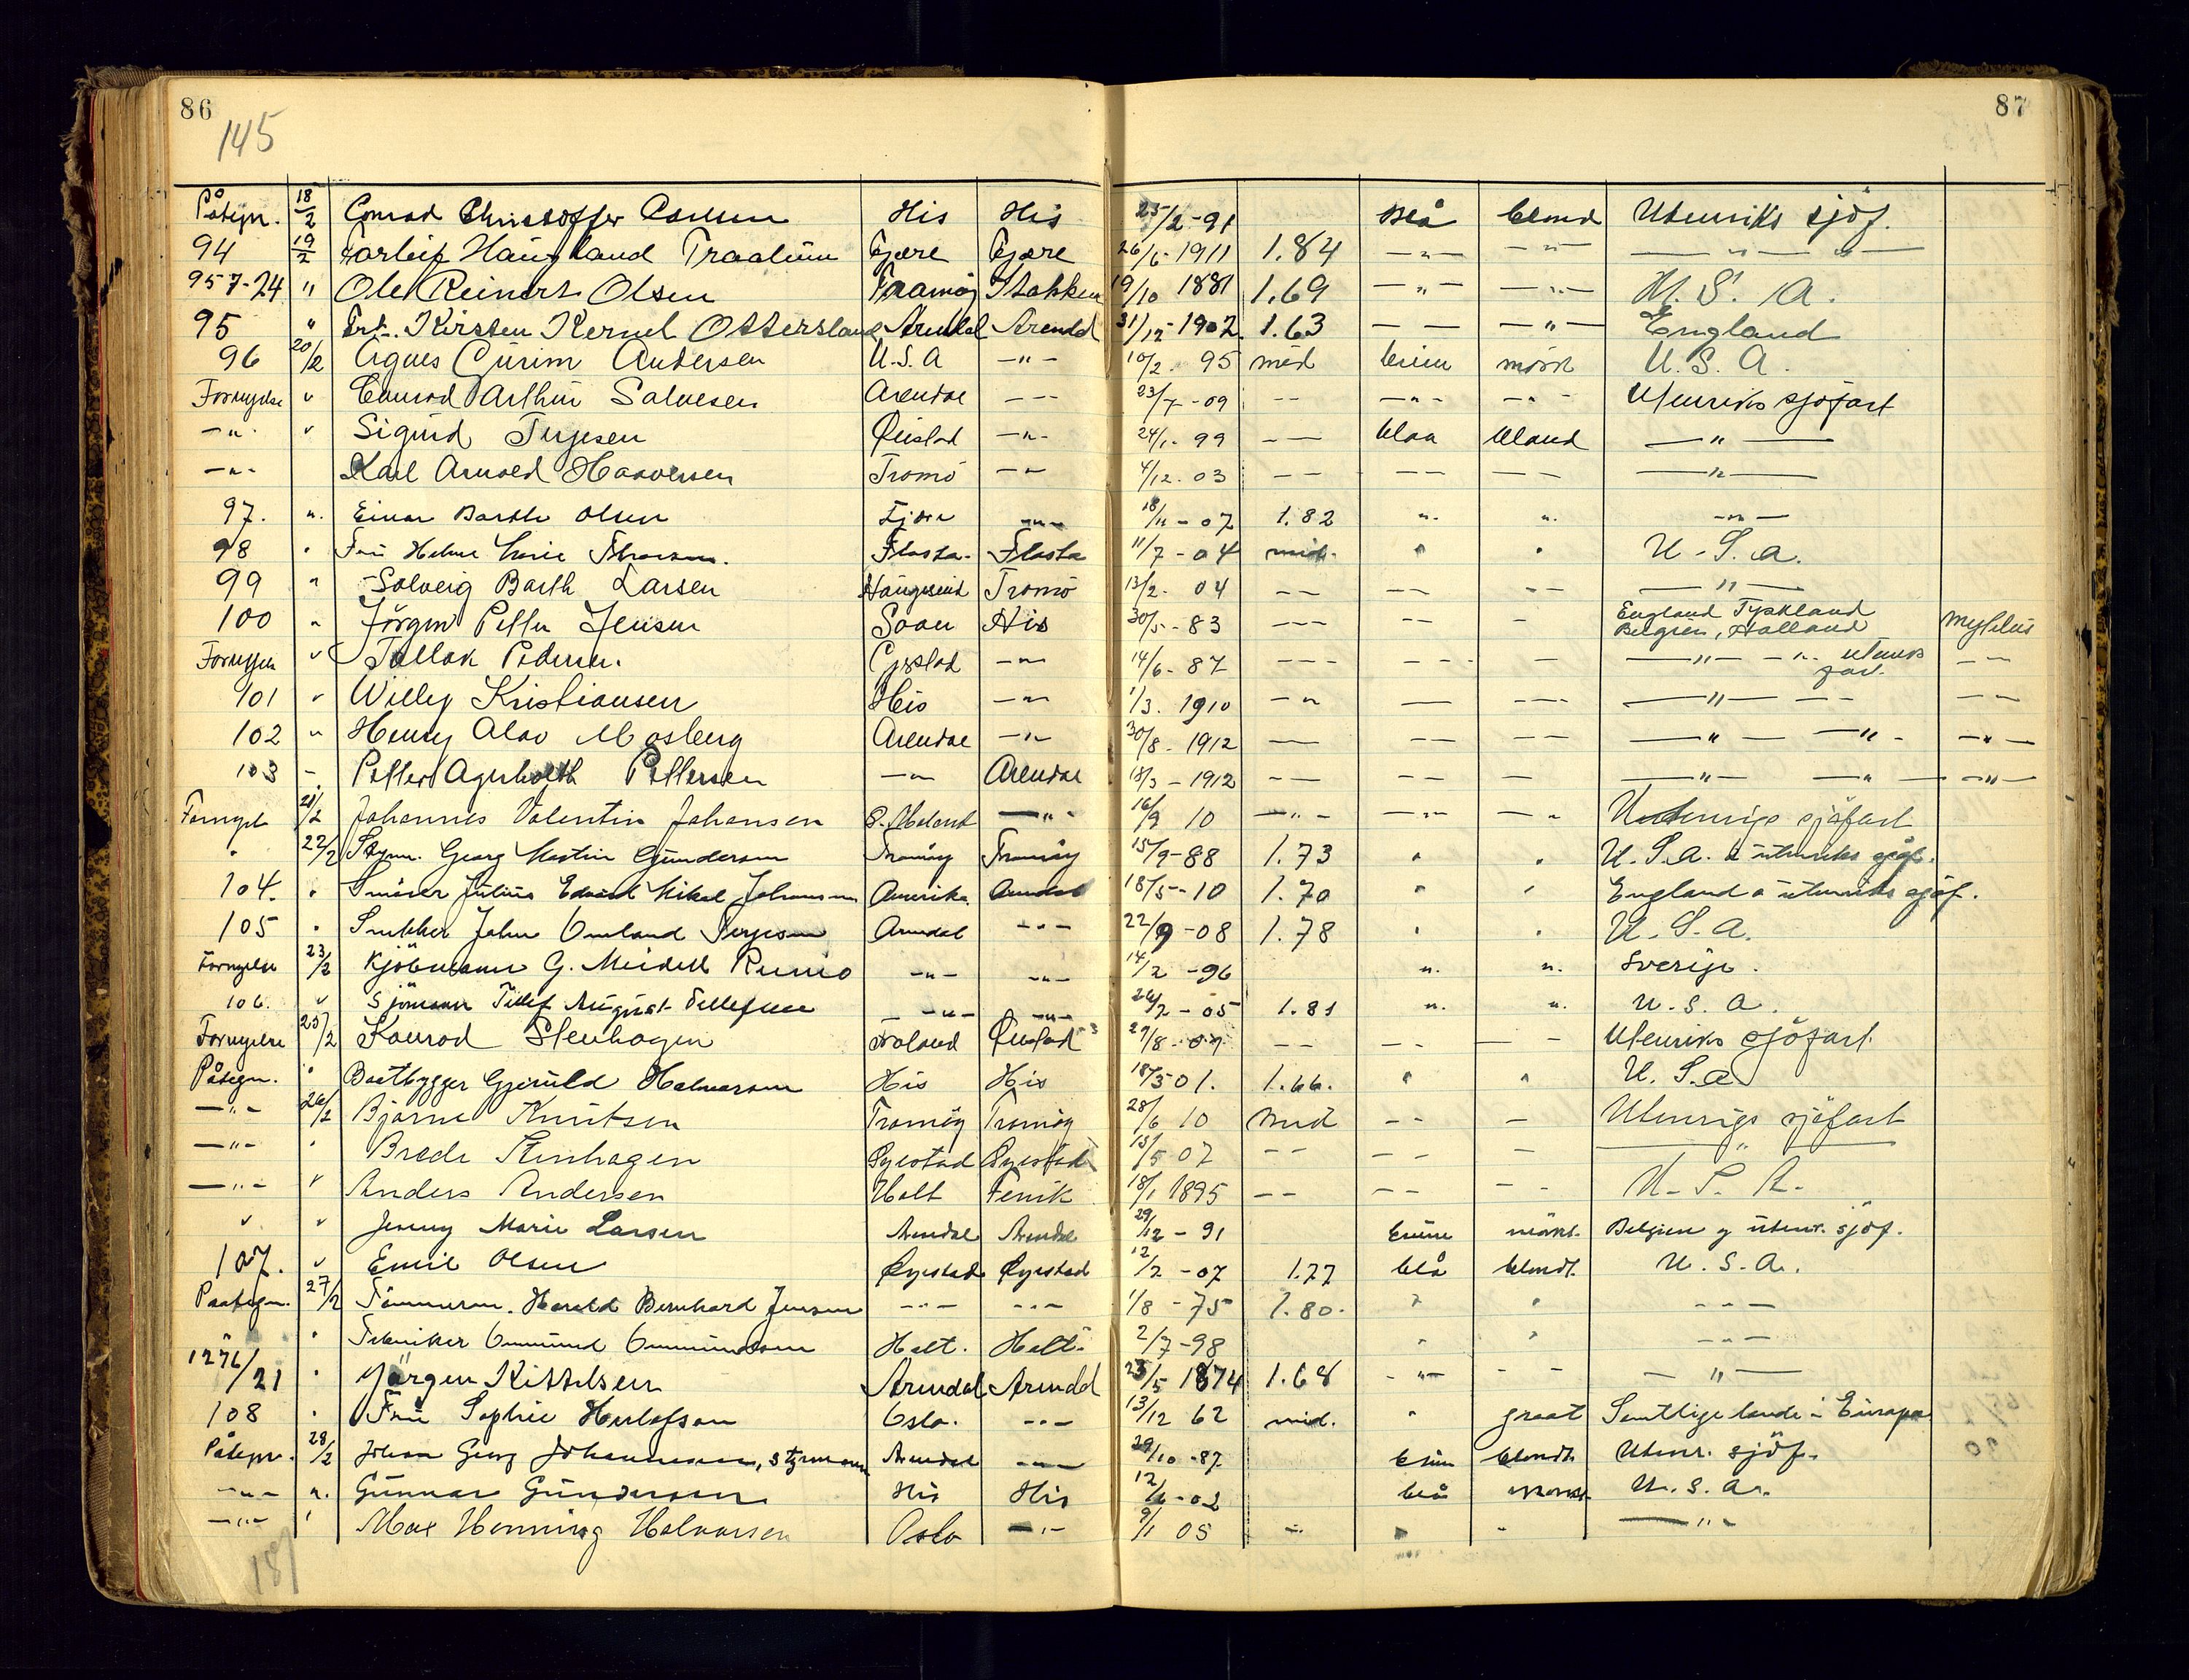 86
87
145
Påtegn. 18/2 Conrad Christoffer Carlsen His His 25/2-91 Blå blond Utenriks sjöf.
94 19/2 Tarleif Haugland Traalum Fjære Fjære 26/6-1911 1.84 -"- -"- -"-
957-24 " Ole Reinert Olsen Tromöy Stokken 19/10 1881 1.69 -"- -"- U.S.A.
95 " Frk. Kirsten Kernel Ottersland Arendal Arendal 31/12-1902 1.63 - - -"- England
96 20/2 Agnes Andersen U.S.A -"- 10/2. 95 mid brun mörk U.S.A.
Fornyelse " Conrad Arthur Salvesen Arendal --- 23/7-09 -- -"- -"- Utenriks sjöfart
-"- " Sigurd Terjesen Öiestad -"- 24/1. 99 -- blaa blond -"-
-"- Karl Arnold Haavorsen Tromö -"- 4/12. 03 -- -- -- -"-
97. " Einar Barth Olsen Fjære -"- 18/11-07 1.82 " " -"-
98 " Fru Helene Marie Thorsen. Flosta Flosta 11/7-04 mid. " " U.S.A.
99 " Solveig Barth Larsen Haugesund Tromö 13/2. 04 -- -- -- -"-
100 " Jörgen Petter Jensen His 30/5-83 --- -- - England Tyskland
Belgien, Holland
Fornyelse " Tallak Pedersen. Öiestad -"- 14/6-87 --- --- - -"- -"- utenriks
fart. --
101 " Willy Kristiansen His -"- 1/3. 1910 -"- -- --- -"- -- --
102 " Henry Olav Mosberg Arendal -"- 30/8-1912 -- -- -- -"- -"- -"-
103 - Petter Agerholth Pettersen -"- Arendal 18/3-1912 -- -- - -"- -"- -"-
Fornyels 21/2 Johannes Valentin Johansen -"- 16/9 10 -"- -"- -"- Utenrigs sjöfart
" 22/2 Styrm. Georg Martin Gundersen Tromöy Tromöy 15/9-88 1.73 " " U.S.A. & utenriks sjöf.
104. " Julius Edvard Mikal Johansen Amerika Arendal 18/5-10 1.70 " " England & utenriks sjöf.
105 " Snekker John Omland Terjesen Arendal --- 22/9-08 1.78 " " U.S.A.
Fornyelse 23/2 Kjöbmann G. Meidell -"- -"- 14/2-96 " " Sverige.
106. " Sjömann Tellef August Tellefsen -"- -"- 26/2-05 1.81 " " U.S.A.
Fornyelse 25/2 Konrad Stenhagen Froland Öiestad 29/8-07 -- -- -- Utenriks sjöfart
Påtegn. " Baatbygger Gjeruld Halvorsen His His 18/3 01. 1.66. " " U.S.A
-"- 26/2 Bjarne Knutsen Tromöy Tromöy 28/6 10 mid -- - Utenrigs sjöfart
-"- " Brede Stenhagen Öyestad Öyestad 15/5 07 -- -- - -"-
-"- " Anders Andersen Holt Fevik 18/1 1895 -- -- -- U.S.A.
" " Jenny Marie Larsen Arendal Arendal 29/12-91 brune mörkt. Belgien og utenr. sjöf.
107. " Emil Olsen Öyestad Öyestad 12/2-07 1.77 blå blondt. U.S.A.
Paategn. 27/2 Tömmerm. Harald Bernhard Jensen --- --- 1/8-75 1.80. " " ---
" Tekniker Ommund Ommundsen Holt. Holt. 2/7-98 " " ---
1276/21 " Jörgen Kittelsen Arendal Arendal 23/5 1874 1.68 -"- -- -"-
108 " Fru Sophie Herlofson Oslo. --- 13/12 62 mid. " graat Samtlige lande i Europa
Påtegn. 28/2 Johan Georg Johannesen, styrmann Arendal --- 29/10-87 brun blondt. Utenr. sjöf.
-"- " Gunnar Gundersen His His 12/6-02 blå U.S.A.
-"- " Max Henning Halvorsen Oslo -"- 9/1 05 " " " -"-
181